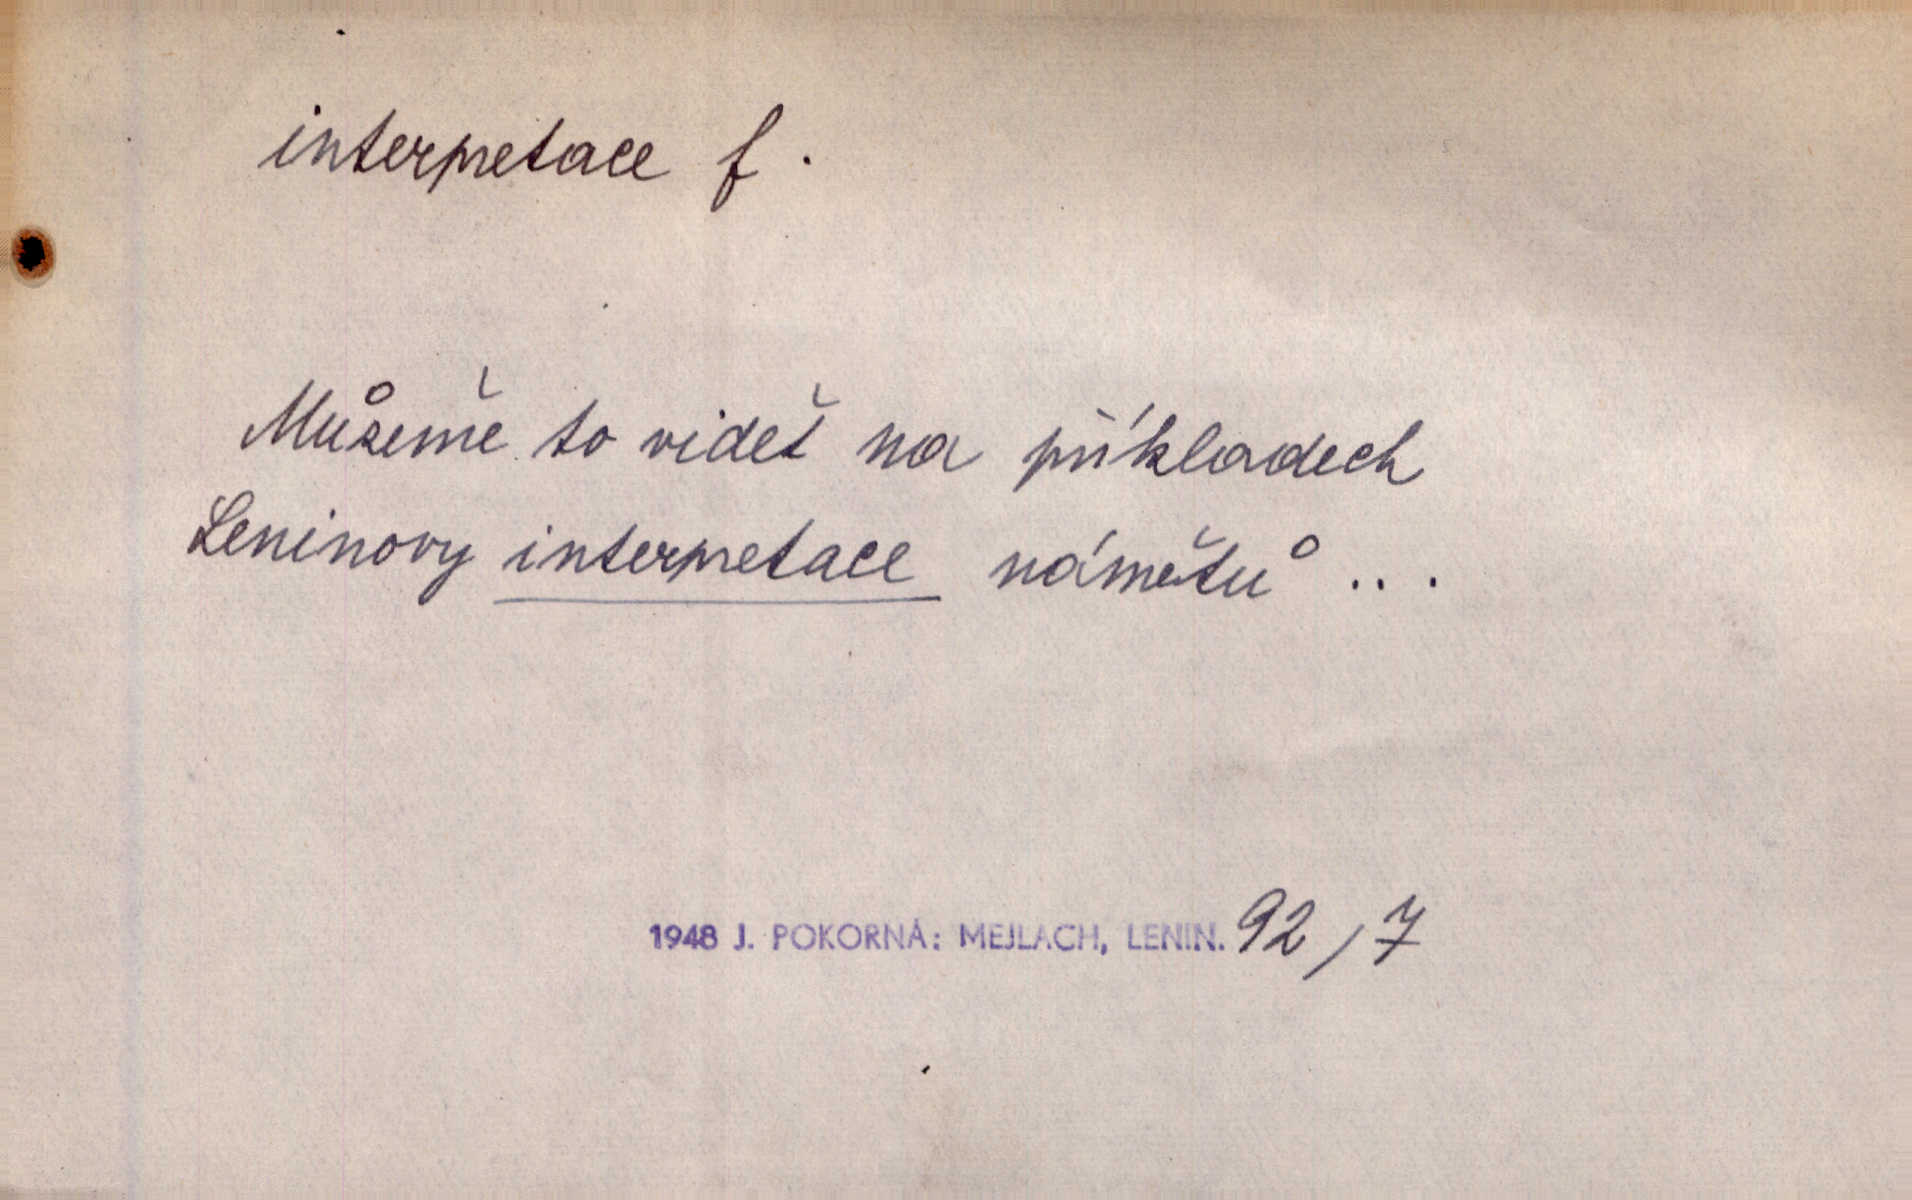 interpretace f.
Můžeme to vidět na příkladech
Leninovy interpretace námětů ...
1948 J. POKORNÁ: MEJLACH, LENIN. 92/7